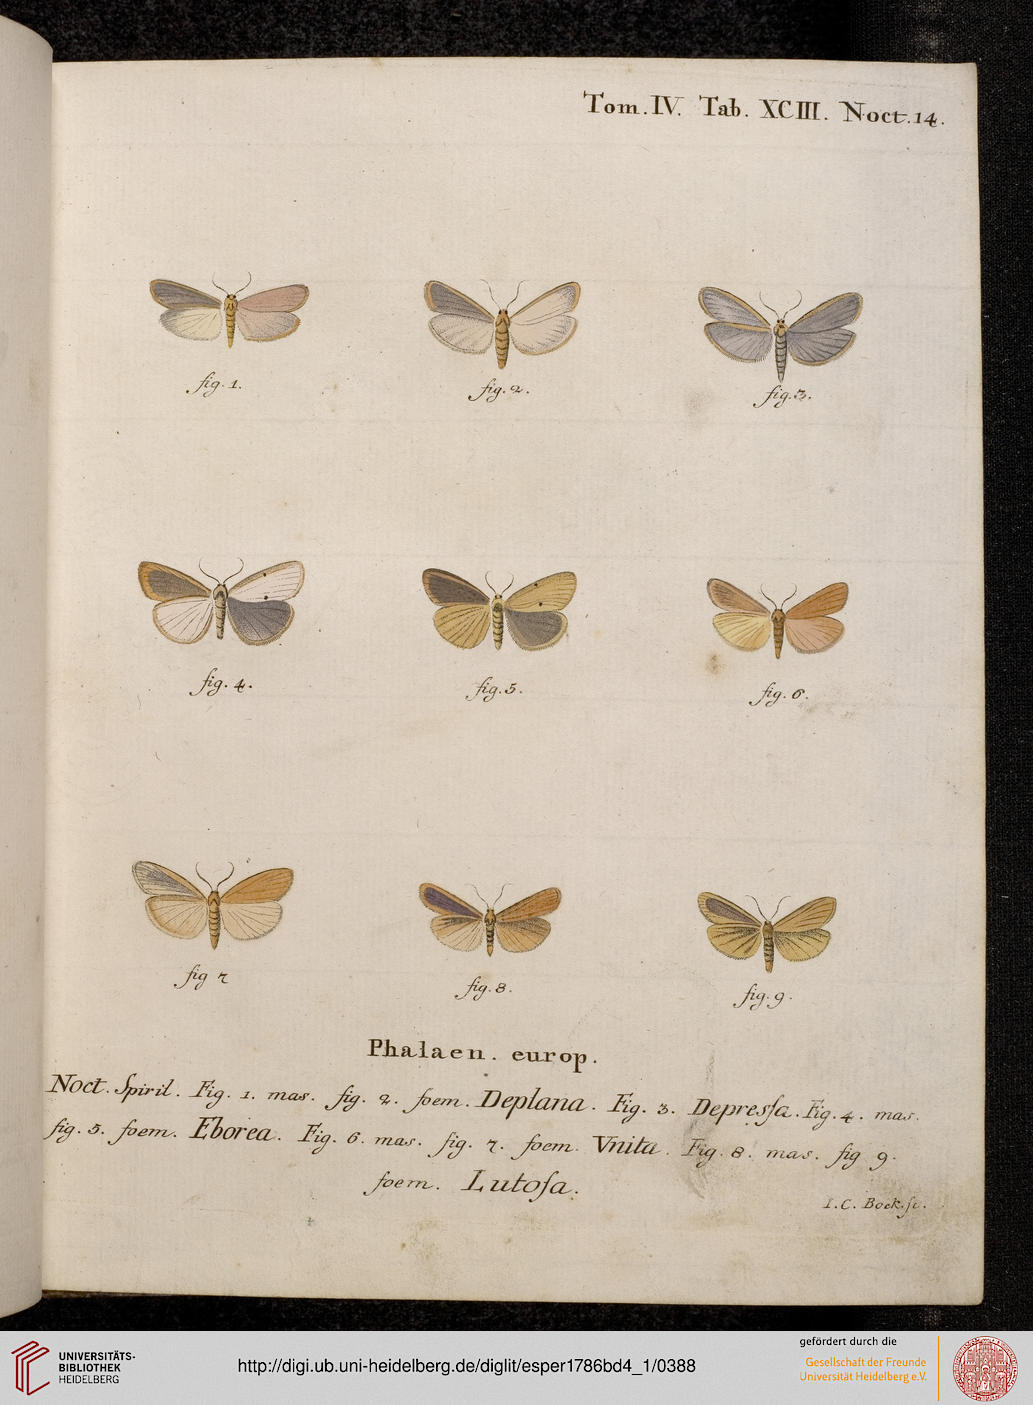 Tom. IV. Tab. XCIII. Noct. 14.
fig. 1.
fig. 2.
fig. 3.
fig. 4.
fig. 5.
fig. 6.
fig 7
fig. 8.
fig. 9.
Phalaen. europ.
Noct. Spiril. Fig. 1. mas. fig. 2. foem. Deplana. Fig. 3. Depreſsa. Fig. 4. mas.
fig. 5. foem. Eborea. Fig. 6. mas. fig. 7. foem. Vnita. Fig. 8. mas. fig 9.
foem. Lutoſa.
I. C. Bock. ſc.
UNIVERSITÄTS-
BIBLIOTHEK
HEIDELBERG
http://digi.ub.uni-heidelberg.de/diglit/esper1786bd4_1/0388
gefördert durch die
Gesellschaft der Freunde
Universität Heidelberg e.V.